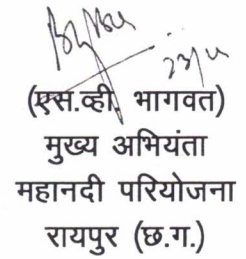 (एस.व्ही. भागवत)
मुख्य अभियंता
महानदी परियोजना
रायपुर (छ.ग.)